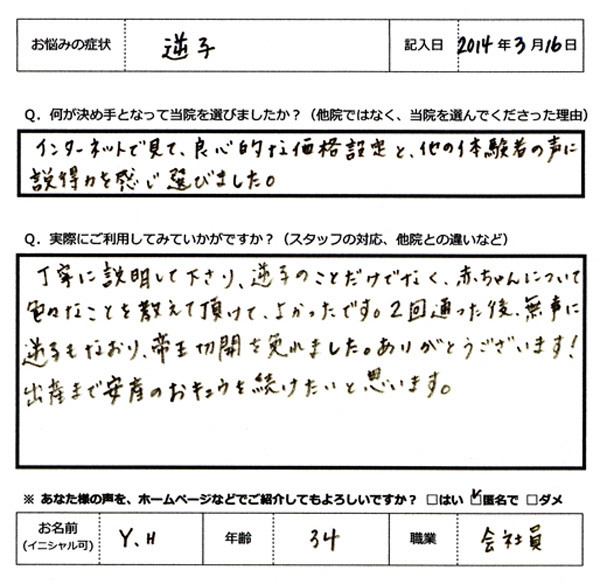 お悩みの症状 逆子 記入日 2014年3月16日
Q．何が決め手となって当院を選びましたか？（他院ではなく、当院を選んでくださった理由）
インターネットで見て、良心的な価格設定と、他の体験者の声に
説得力を感じ選びました。
Q．実際にご利用してみていかがですか？（スタッフの対応、他院との違いなど）
丁寧に説明して下さり、逆子のことだけでなく、赤ちゃんについて
色々なことを教えて頂けて、よかったです。2回通った後、無事に
逆子もなおり、帝王切開を免れました。ありがとうございます！
出産まで安産のおキュウを続けたいと思います。
※ あなた様の声を、ホームページなどでご紹介してもよろしいですか？ □はい ☑匿名で □ダメ
お名前 Y.H 年齢 34 職業 会社員
(イニシャル可)